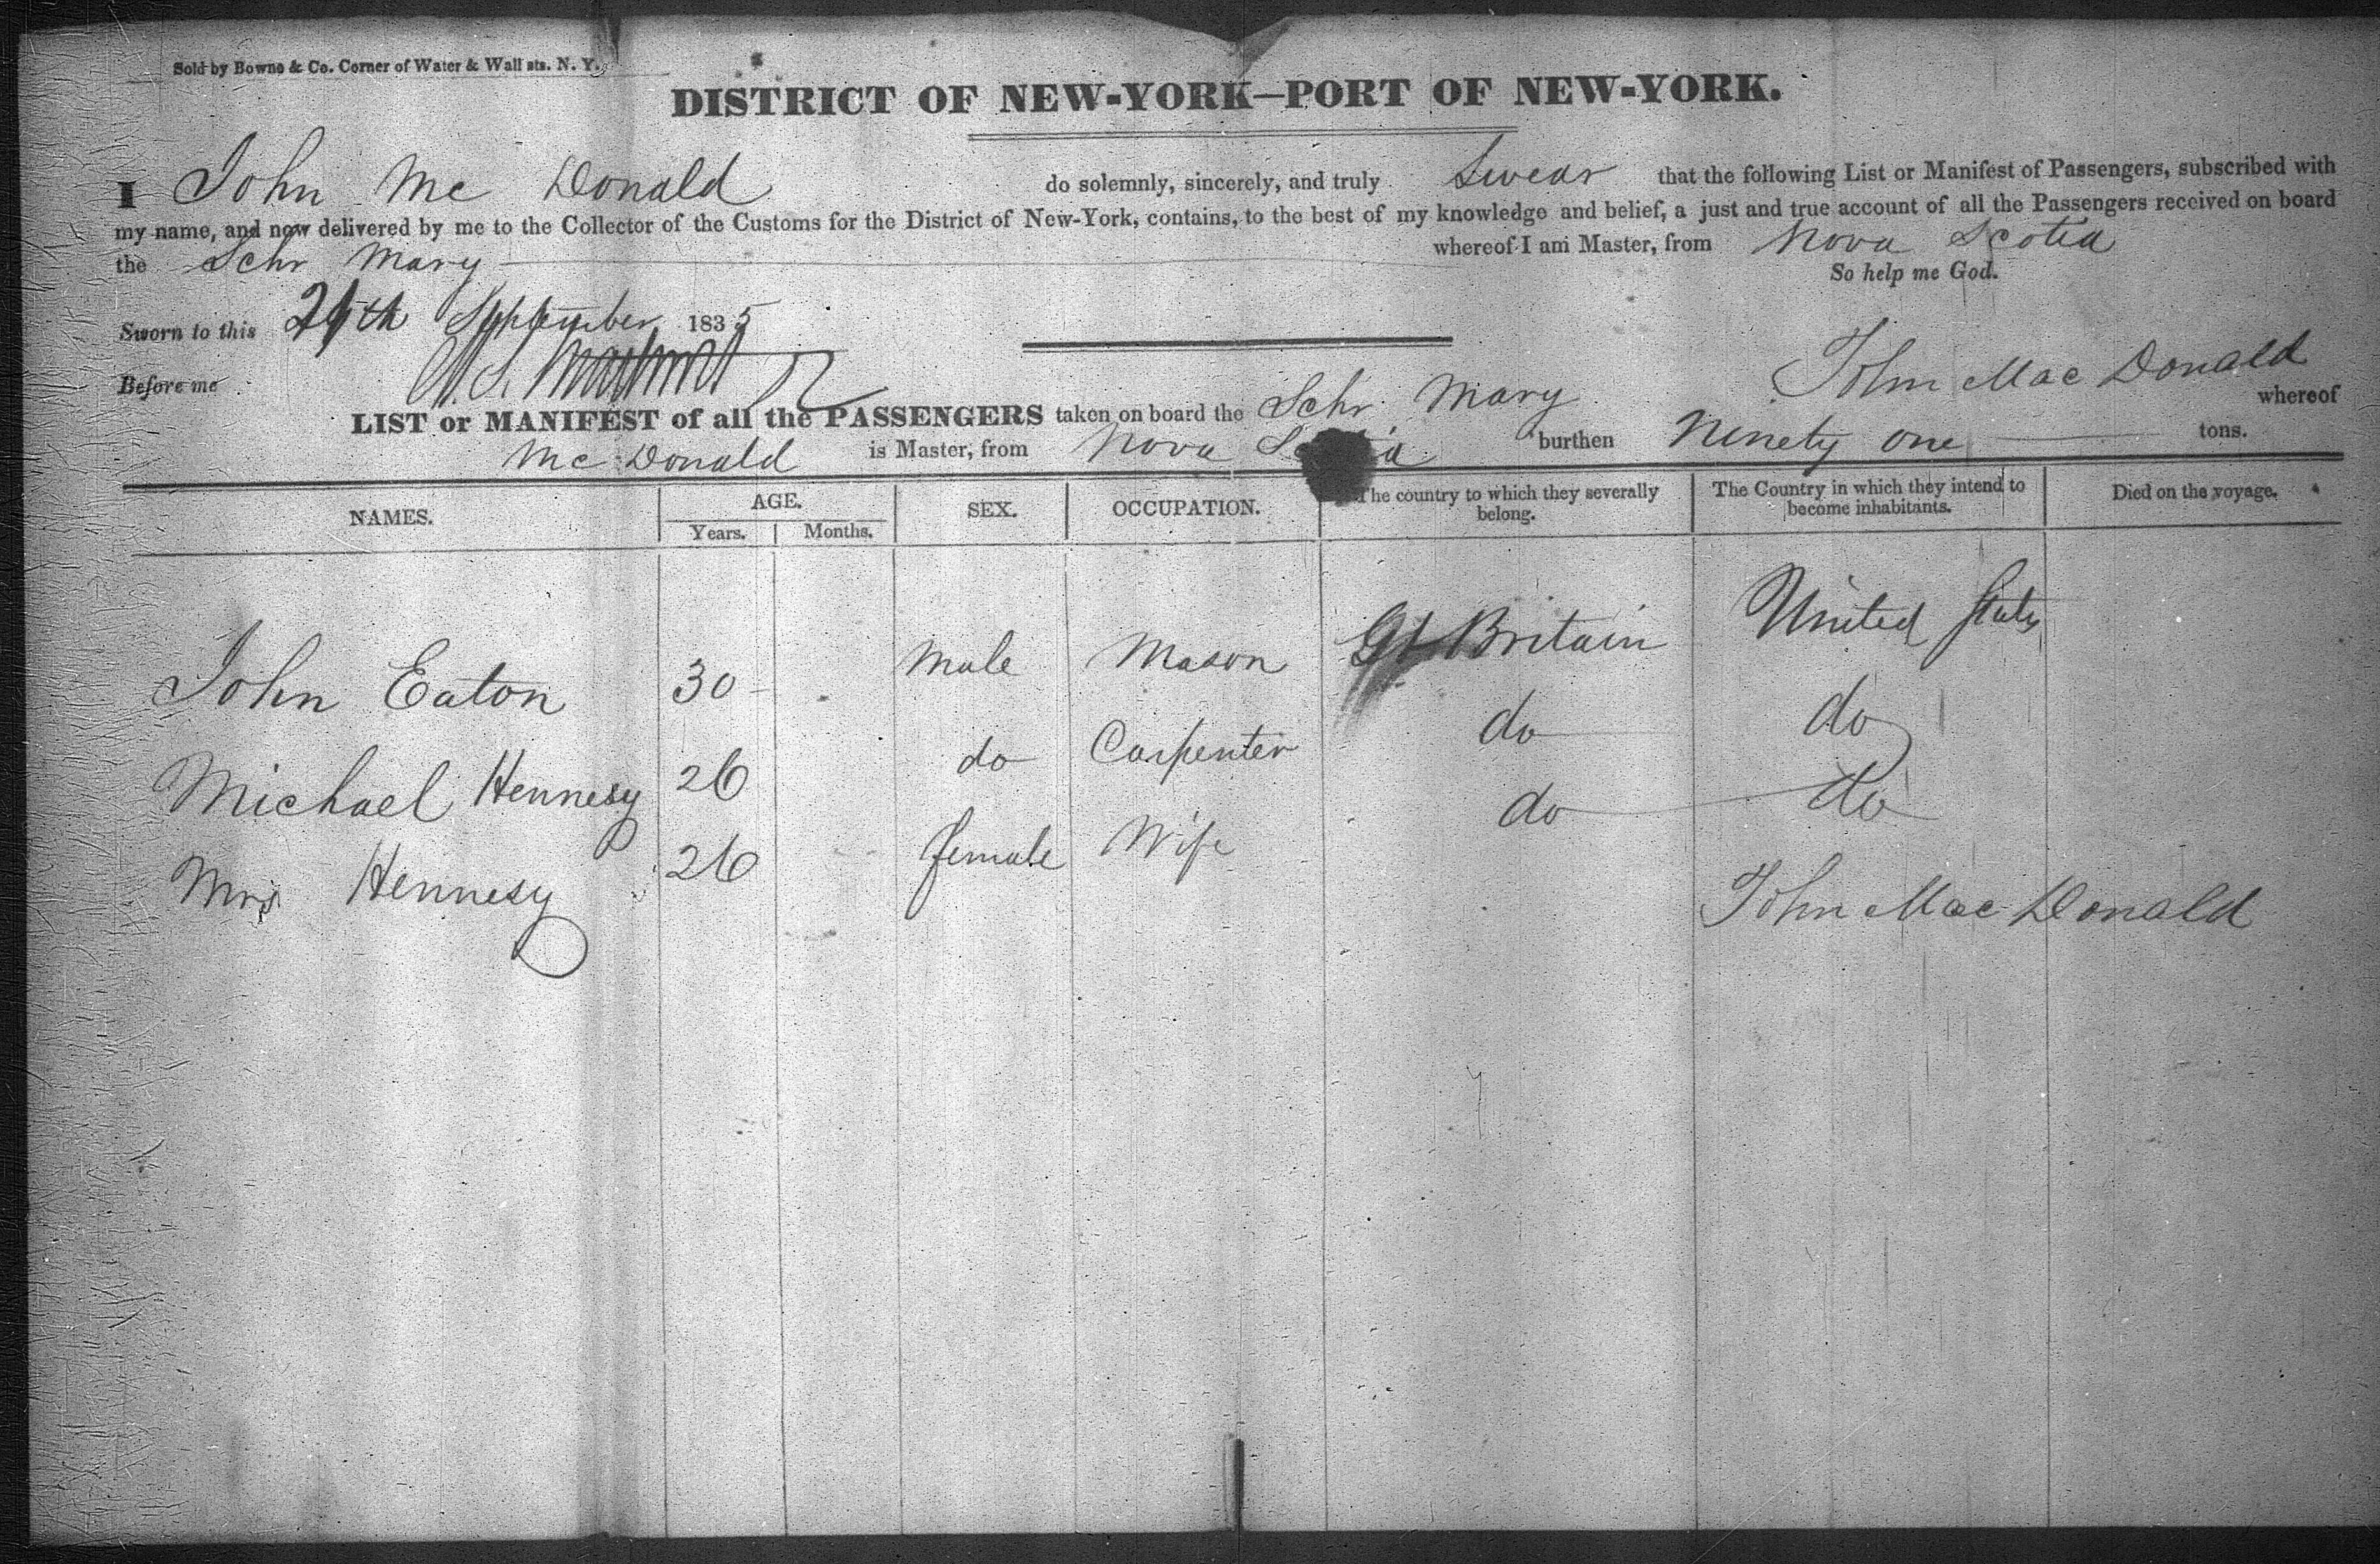 Sold by Bowne & Co. Corner of Water & Wall sts. N. Y.
DISTRICT OF NEW-YORK—PORT OF NEW-YORK.
I John Mc Donald do solemnly, sincerely, and truly Swear that the following List or Manifest of Passengers, subscribed with
my name, and now delivered by me to the Collector of the Customs for the District of New-York, contains, to the best of my knowledge and belief, a just and true account of all the Passengers received on board
the Schr Mary whereof I am Master, from Nova Scotia
So help me God.
Sworn to this September 1835
Before me
John Mac Donald
LIST or MANIFEST of all the PASSENGERS taken on board the Schr Mary whereof
Mc Donald is Master, from Nova Scotia burthen Ninety one tons.
NAMES. AGE. Years. Months. SEX. OCCUPATION. The country to which they severally belong. The Country in which they intend to become inhabitants. Died on the voyage.
John Eaton 30 Male Mason Gt Britain United States
Michael Hennesy 26 do Carpenter do do
Mrs Hennesy 26 female Wife do do
John Mac Donald